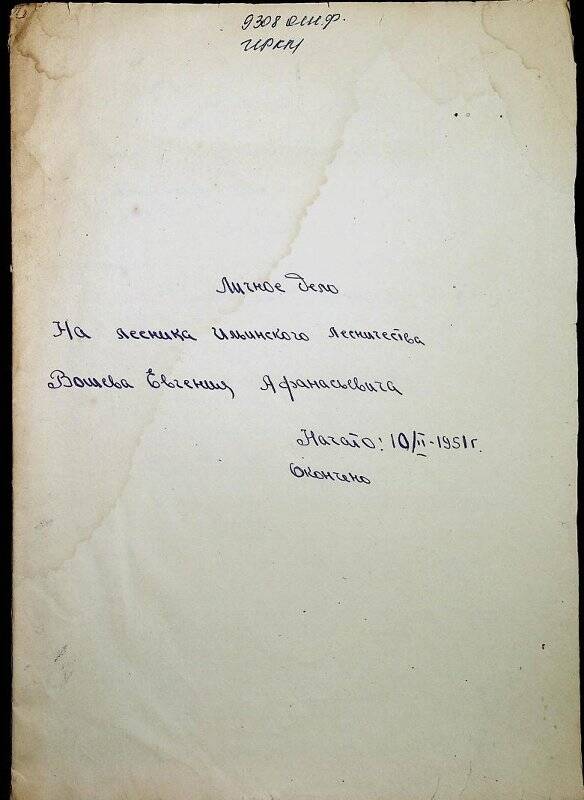 9308 ОЛНФ.
ИРКМ
Личное дело
На лесника Ильинского лесничества
Вошева Евгения Афанасьевича
Начато: 10/II-1951г.
Окончено